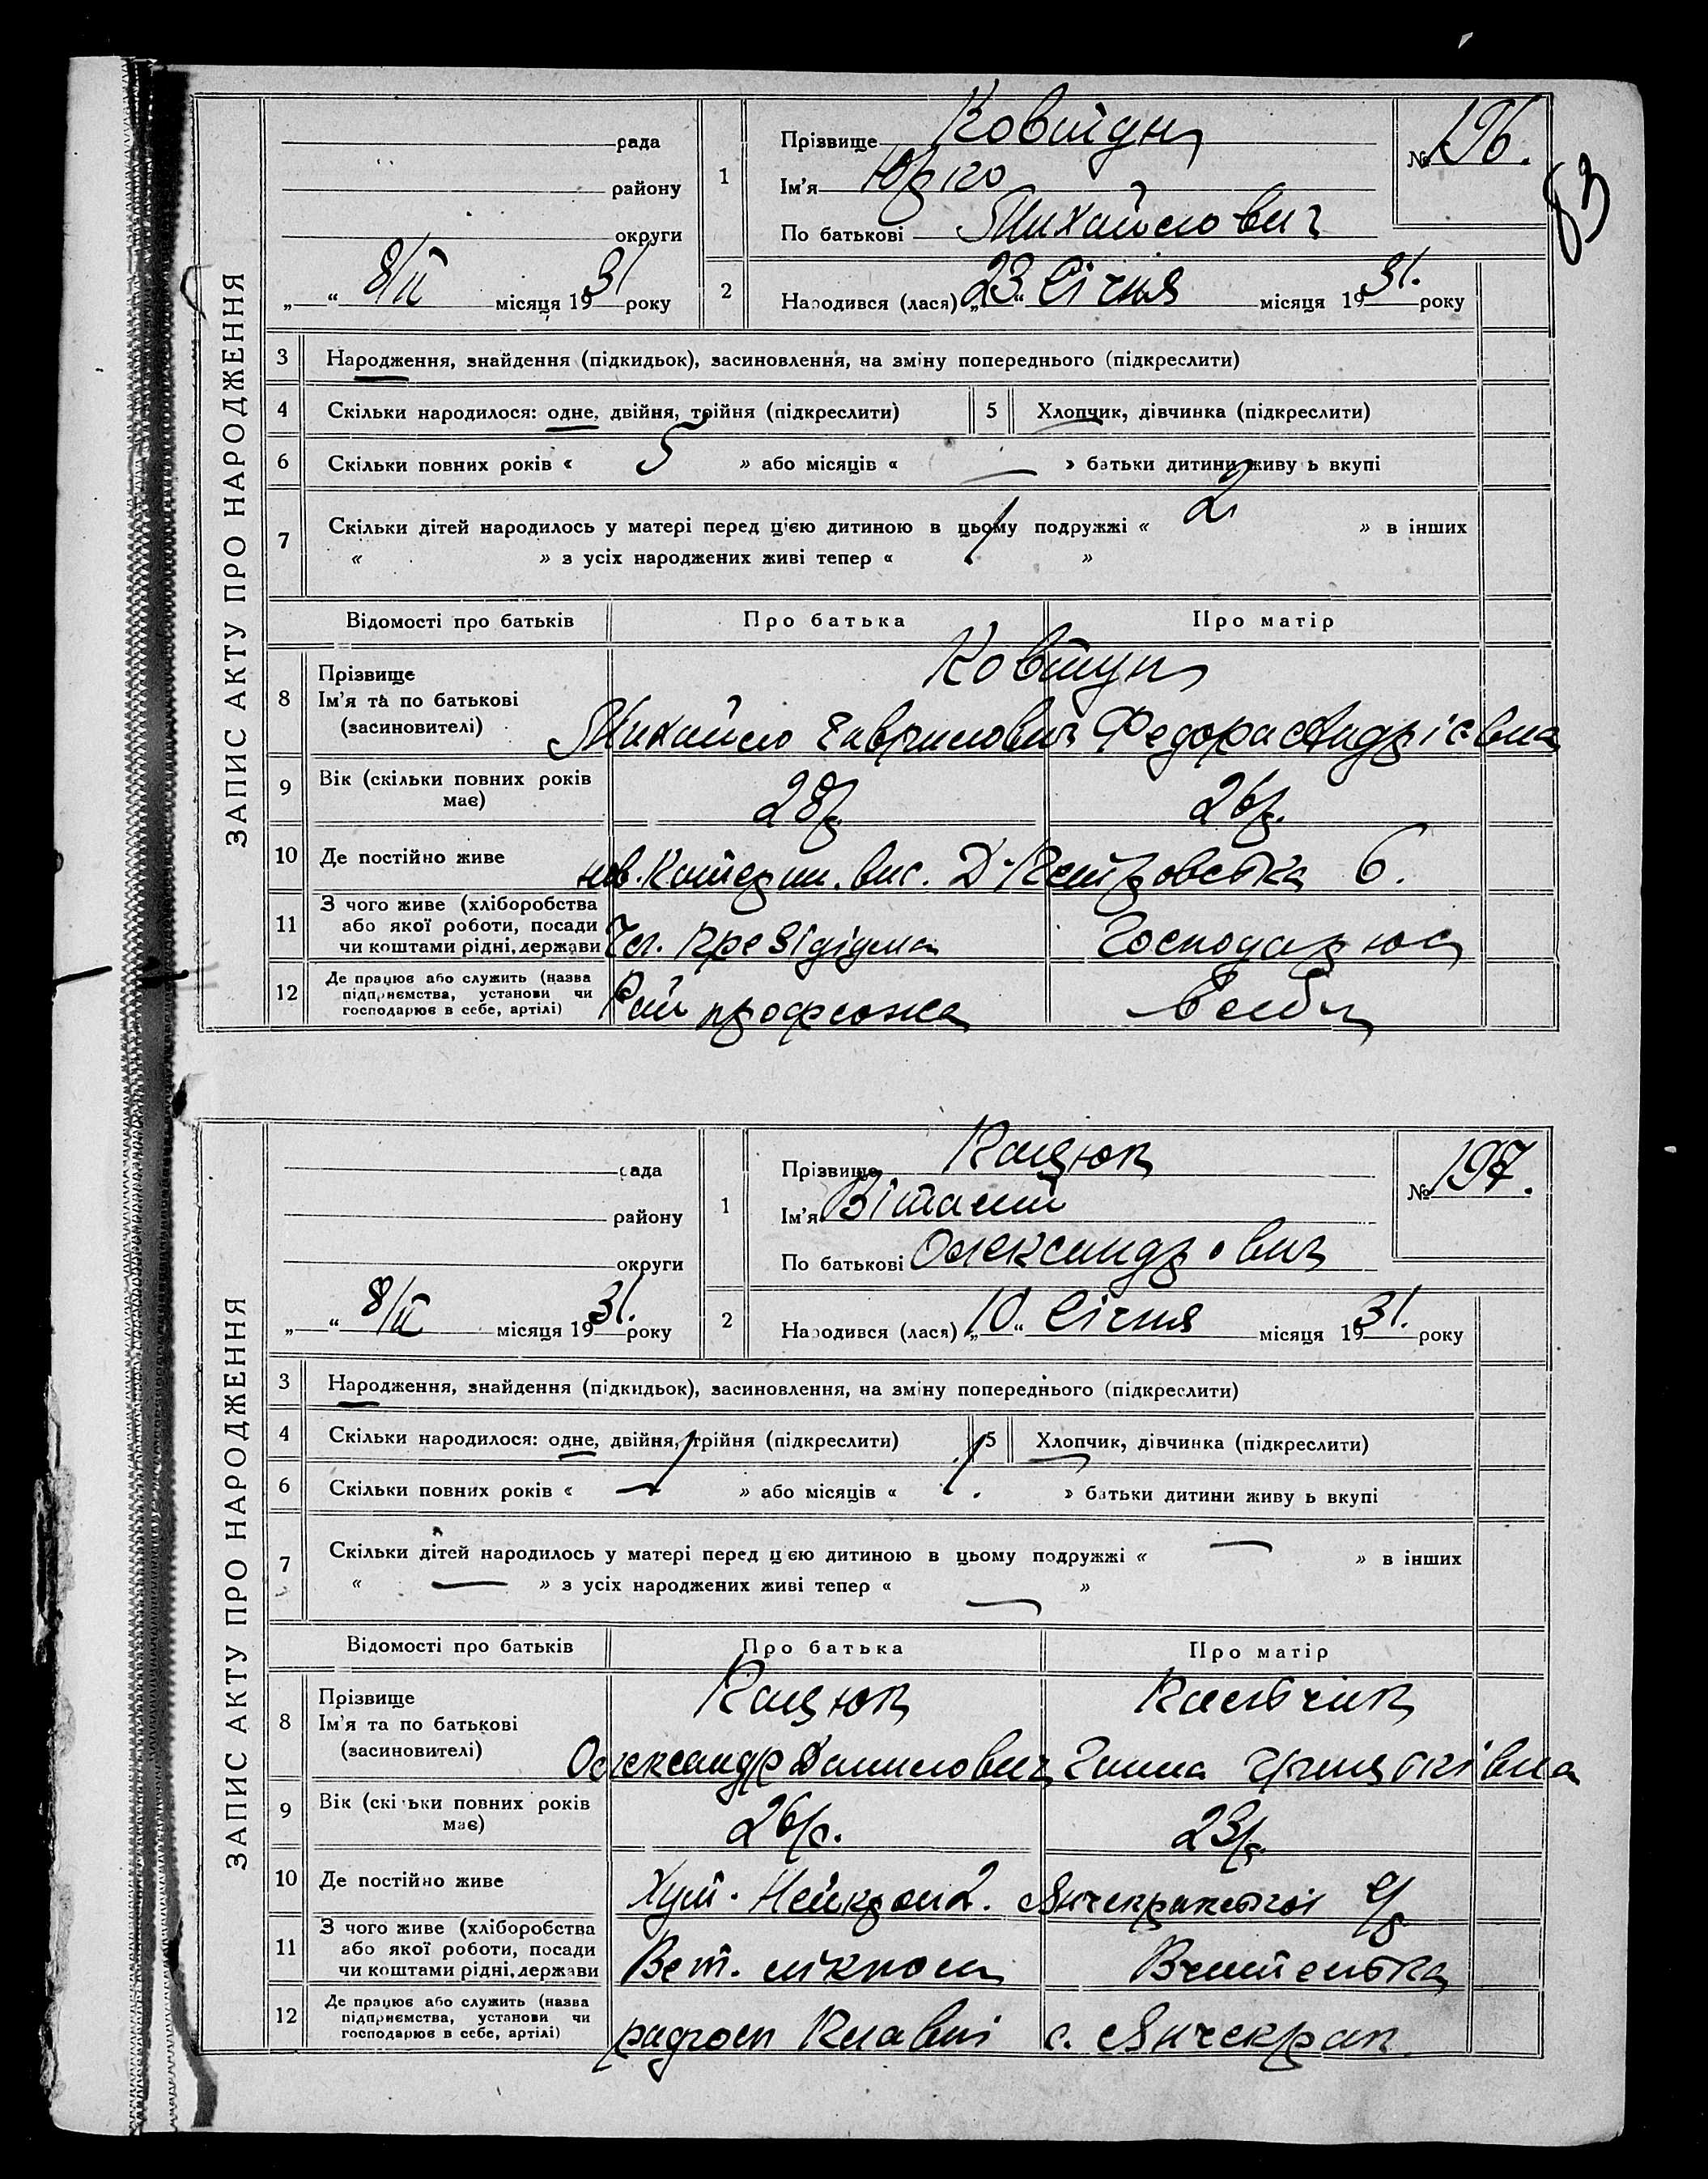 ЗАПИС АКТУ ПРО НАРОДЖЕННЯ
рада
району
округи
„ “ 8/II місяця 1931 року
1 Прізвище Ковтун
Ім’я Юрко
По батькові Михайлович
№ 196.
83
2 Народився (лася) „23“ Січня місяця 1931. року
3 Народження, знайдення (підкидьок), засиновлення, на зміну попереднього (підкреслити)
4 Скільки народилося: одне, двійня, трійня (підкреслити) 5 Хлопчик, дівчинка (підкреслити)
6 Скільки повних років « 5 » або місяців « — » батьки дитини живу ь вкупі
7 Скільки дітей народилось у матері перед цією дитиною в цьому подружжі « 2 » в інших
« » з усіх народжених живі тепер « 1 »
Відомості про батьків Про батька Про матір
8 Прізвище Ім’я та по батькові (засновителі) Ковтун
Михайло Гаврилович Федора Андріевна
9 Вік (скільки повних років має) 28р. 26р.
10 Де постійно живе вис. Д-Петровська 6.
11 З чого живе (хліборобства або якої роботи, посади чи коштами рідні, держави Чл. Президіума Господарює
12 Де працює або служить (назва підприємства, установи чи господарює в себе, артілі) Рай профсожа в себе
ЗАПИС АКТУ ПРО НАРОДЖЕННЯ
рада
району
округи
„ “ 8/II місяця 1931. року
1 Прізвище Кацюк
Ім’я Віталий
По батькові Олександрович
№ 197.
2 Народився (лася) „10“ Січня місяця 1931. року
3 Народження, знайдення (підкидьок), засиновлення, на зміну попереднього (підкреслити)
4 Скільки народилося: одне, двійня, трійня (підкреслити) 5 Хлопчик, дівчинка (підкреслити)
6 Скільки повних років « 1 » або місяців « 1. » батьки дитини живу ь вкупі
7 Скільки дітей народилось у матері перед цією дитиною в цьому подружжі « — » в інших
« — » з усіх народжених живі тепер « — »
Відомості про батьків Про батька Про матір
8 Прізвище Ім’я та по батькові (засиновителі) Кацюк Кальчик
Олександр Данилович Ганна
9 Вік (скільки повних років має) 26р. 23р.
10 Де постійно живе Хут. Янчекракської с/р
11 З чого живе (хліборобства або якої роботи, посади чи коштами рідні, держави Вет. лікпом Вчителька
12 Де працює або служить (назва підприємства, установи чи господарює в себе, артілі) радгосп с. Янчекрак